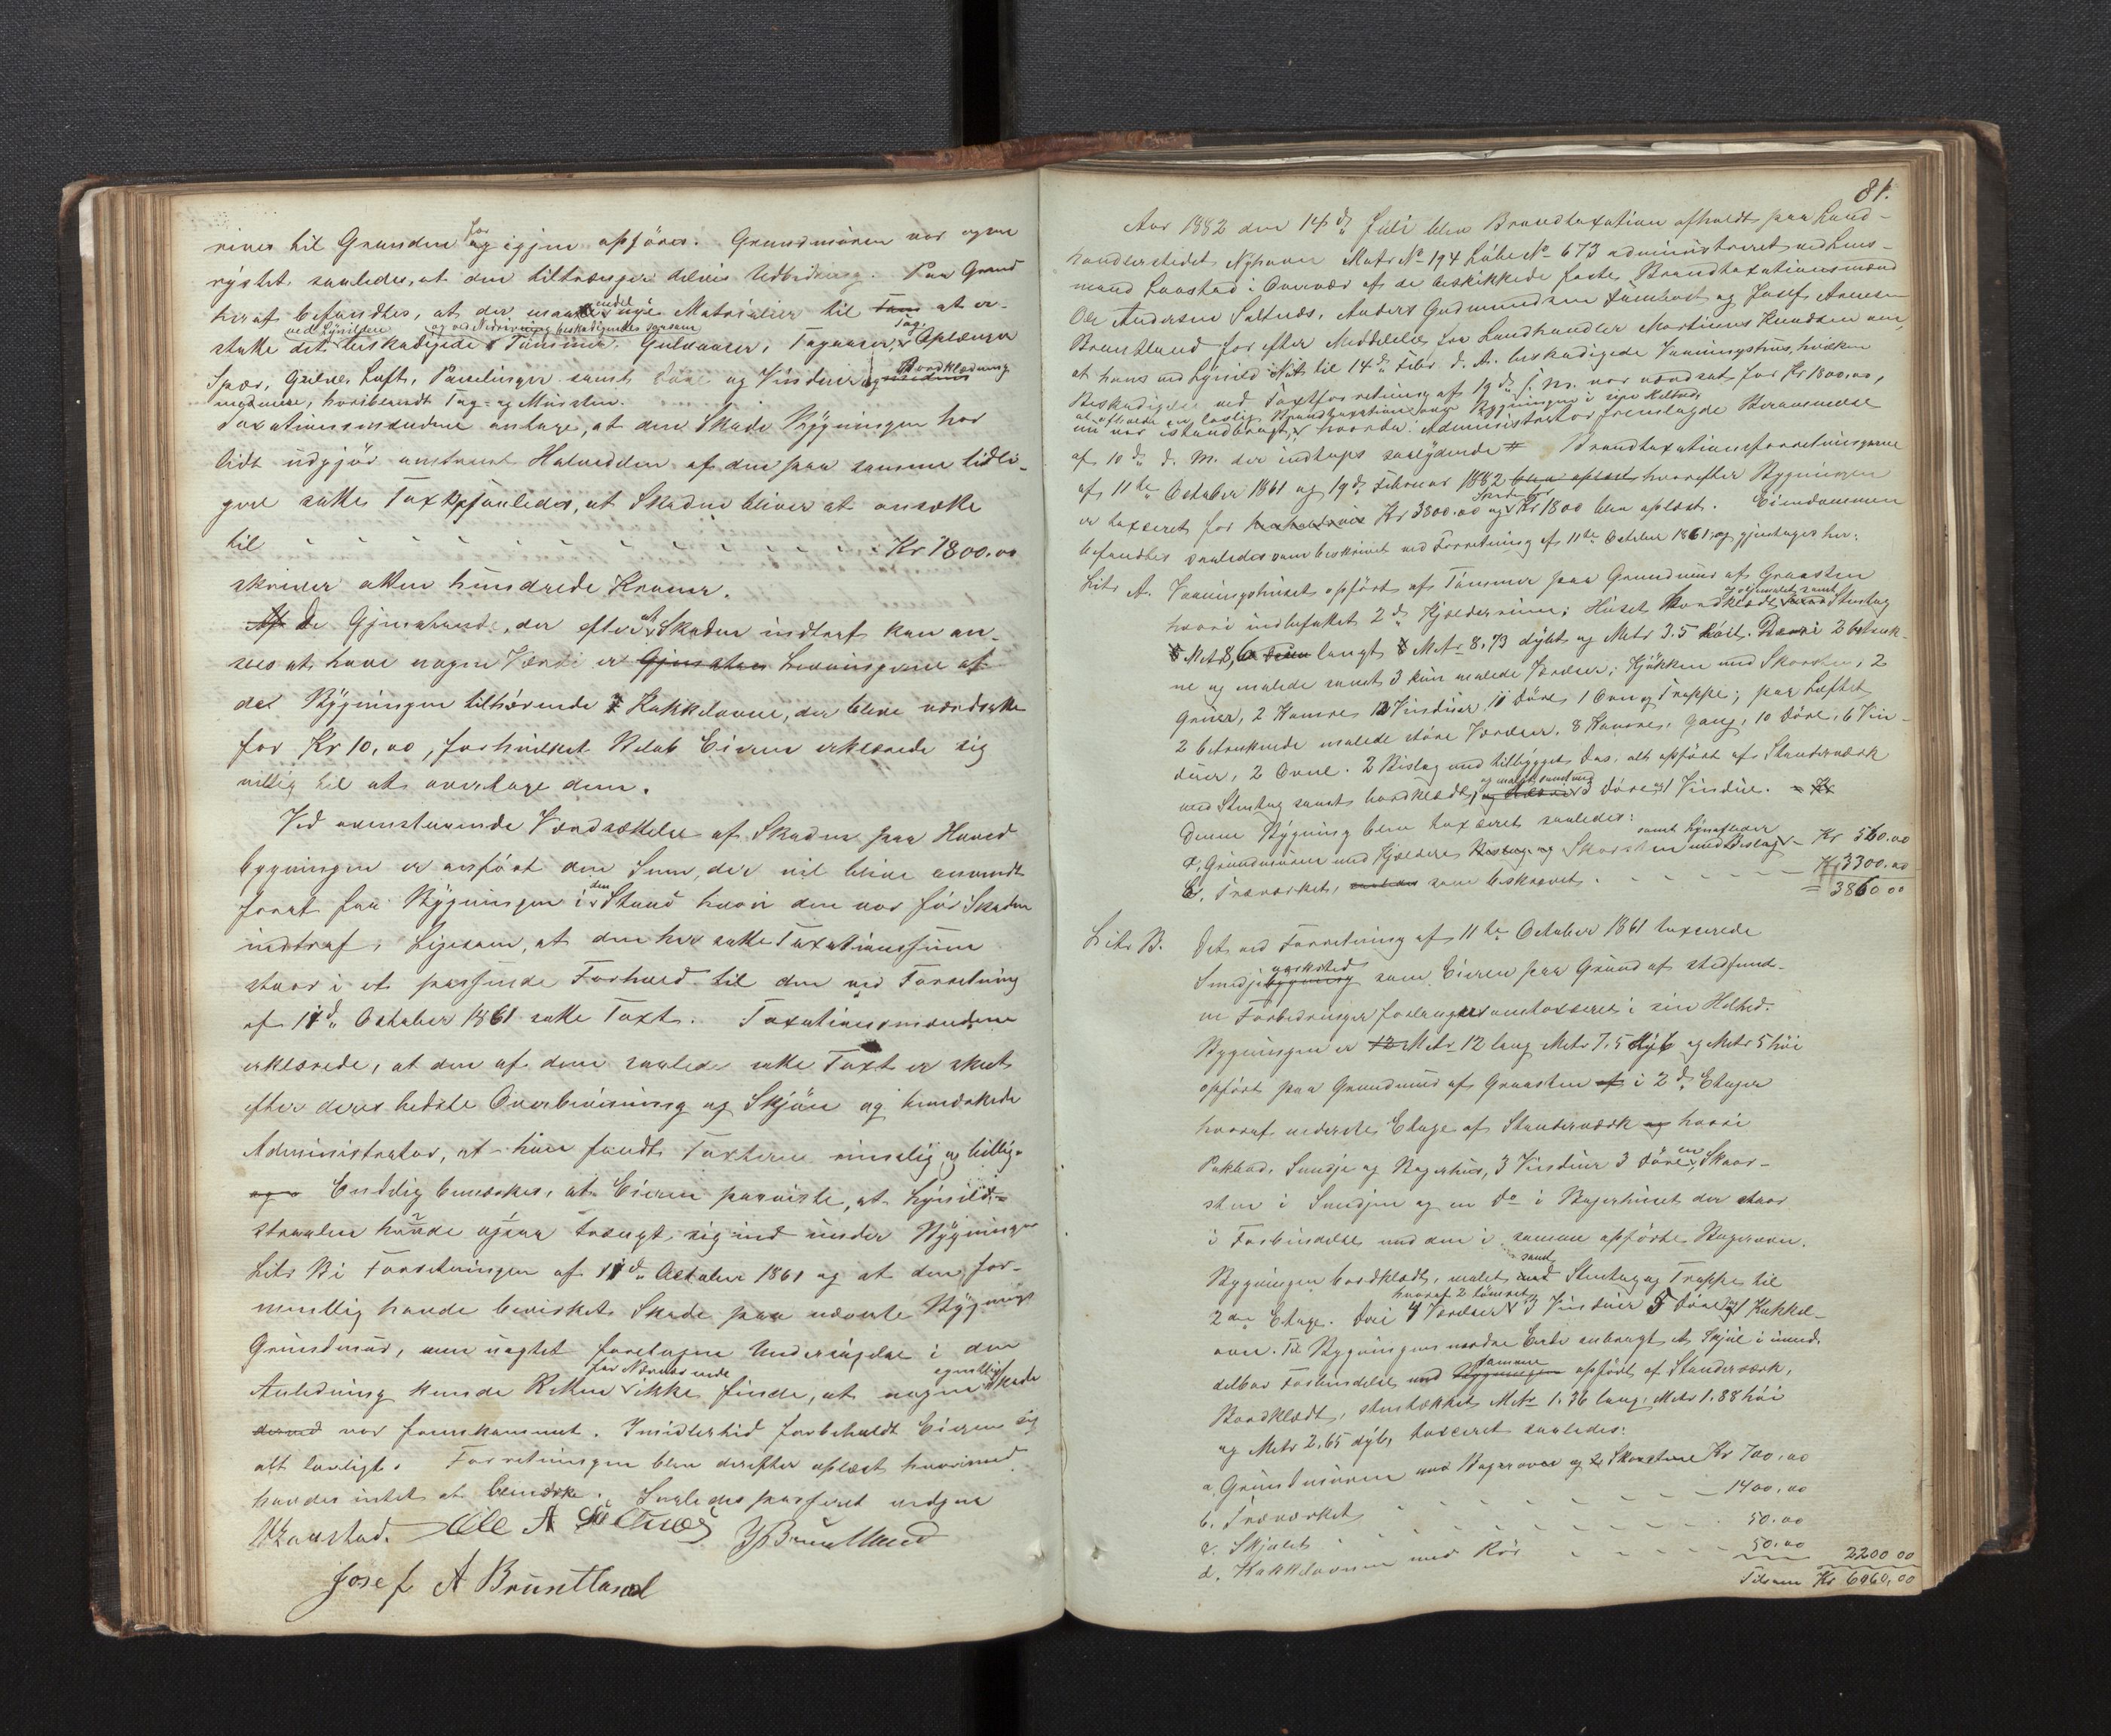 rives til Grunden for og igjen opføres. Grundmuren var ogsaa
rystet saaledes, at den tiltrænger delvis Udbedring. Paa Grund
heraf befandtes, at der maatte endel nye Materialier til at er-
statte det ved Lynilden beskadigede og ved Nedrivning beskadigendes saasom Tømmer, Gulvaaser, Tagaaser, Tag, Oplænger
Spær, Gulve, Loft, Panelinger samt Døre og Vinduer Bordklædning
med mere, heriberandt Tag- og Mursten.
Taxationsmændene antage, at den Skade Bygningen har
lidt udgjør omtrent Halvdelen af den paa samme tidli-
gere satte Taxt saaledes, at Skaden bliver at ansætte
til - - - - - - - - Kr 1800.00
skriver atten hundrede Kroner.
De Gjenstande, der efter at Skaden indtraf kan an-
sees at have nogen Værdi er Levningerne af
de Bygningen tilhørende Kakkelovne, der bleve værdsatte
for Kr 10,00, for hvilket Beløb Eieren erklærede sig
villig til at overtage dem.
Ved ovenstaaende Værdsættelse af Skaden paa Hoved
bygningen er anført den Sum, der vil blive anvendt
forat faa Bygningen i den Stand hvori den var før Skaden
indtraf, Ligesom, at den her satte Taxationssum
staar i et passende Forhold til den ved Forretning
af 11te October 1861 satte Taxt. Taxationsmændene
erklærede, at den af dem saaledes satte Taxt er skeet
efter deres bedste Overbeviisning og Skjøn og bemærkede
Administrator, at han fandt Taxterne rimelig og billig.
Endelig bemærkes, at Eieren paaviste, at Lynild-
straalen havde ogsaa trængt sig ind under Bygningen
Litr B i Forretningen af 11te October 1861 og at den for-
mentlig havde bevirket Skade paa nævnte Bygnings
Grundmur, men uagtet foretagen Undersøgelse i den
Anledning kunde Retten for Nærværende ikke finde, at nogen egentlig Skade
derved var fremkommet. Imidlertid forbeholdt Eieren sig
alt lovligt. Forretningen blev derefter oplæst hvorimod
havdes intet at bemærke. Saaledes passeret vedgaa
Laastad. Ole A Saltnæs
Josef A Bruntland
81.
Aar 1882 den 14de Juli blev Brandtaxation afholdt paa Land-
handlerstedet Nyhavn Matr No 194 Løbe No 673 administreret ved Lens-
mand Laastad i Overvær af de beskikkede faste Brandtaxationsmænd
Ole Andersen Saltnæs, Anders Gudmundsen og Josef Arnesen
Bruntland for efter Meddelelse fra Landhandler Martinus Knudsen om,
at hans ved Lynild Nat til 14de Febr d. A. beskadigede Vaaningshus, hvilken
Beskadigelse ved Taxtforretning af 19de s. M. var værdsat for Kr 1800.00,
nu var istandbragt, at afholde en lovlig Brandtaxation over Bygningen i sin Helhed
hvorda Administrator fremlagde Berammelse
af 10de d. M. der indtages saalydende # Brandtaxationsforretningerne
af 11te October 1861 og 19de Februar 1882 hvorefter Bygningen
er taxeret for Kr 3800.00 og Skaden for Kr 1800 blev oplæst. Eiendommen
befandtes saaledes som beskrivet ved Forretning af 11te October 1861 og gjentages her:
Litr A. Vaaningshuset opført af Tømmer paa Grundmur af Graasten
hvori indbefattet 2de Kjelderrum; Huset Bordklædt og oljemalet samt Stentag
Metr 8,6 langt Metr 8.73 dybt og Metr 3.5 høit. Deri 2 betræk-
ne og malede samt 3 kun malede Værelser; Kjøkken med Skorsten, 2
Gange, 2 Kamre 12 Vinduer 11 Døre 1 Ovn og Trappe; paa Loftet
2 betrukne malede større Værelser, 8 Kamre, Gang, 10 Døre, 6 Vin-
duer, 2 Ovne. 2 Bislag med tilbygget Das, alt opført af Standerværk
med Stentag samt bordklædt og malet samt med 3 Døre og 1 Vindue.
Denne Bygning blev taxeret saaledes:
a, Grundmuren med Kjeldere Skorsten samt Lynafleder med Bislag - Kr 560.00
b, Træværket, som beskrevet. - - - - - - Kr 3300.00
= 3860 00
Litr B. Det ved Forretning af 11te October 1861 taxerede
Smedjeværksted som Eieren paa Grund af stedfund-
ne Forbedringer forlanger omtaxeret i sin Helhed.
Bygningen er Metr 12 lang Metr 7,5 dyb og Metr 5 høi
opført paa Grundmur af Graasten i 2de Etager
hvoraf nederste Etage af Standerværk hvori
Pakbod, Smedje og Bagerhus, 3 Vinduer 3 Døre, en Skor-
sten i Smedjen og en do i Bagerhuset der staar
i Forbindelse med den i samme opførte Bagerovn.
Bygningen bordklædt, malet samt Stentag og Trappe til
2den Etage. Deri 4 Værelser hvoraf 2 tømret 3 Vinduer 5 Døre og 1 Kakkel-
ovn. Til Bygningens nordre Ende anbragt et Skjul i umid-
delbar Forbindelse med samme opført af Standerværk,
Bordklædt, stentækket Metr 1.36 lang, Metr 1.88 høi
og Metr 2,65 dyb, taxeret saaledes:
a, Grundmuren med Bagerovn og 2 Skorstene Kr 700,00
b. Træværket - - - - - - - 1400,00
c. Skjulet - - - - - - - 50.00
d. Kakkelovnen med Rør - - - - - 50.00 2200 00
Tilsam Kr 6060,00